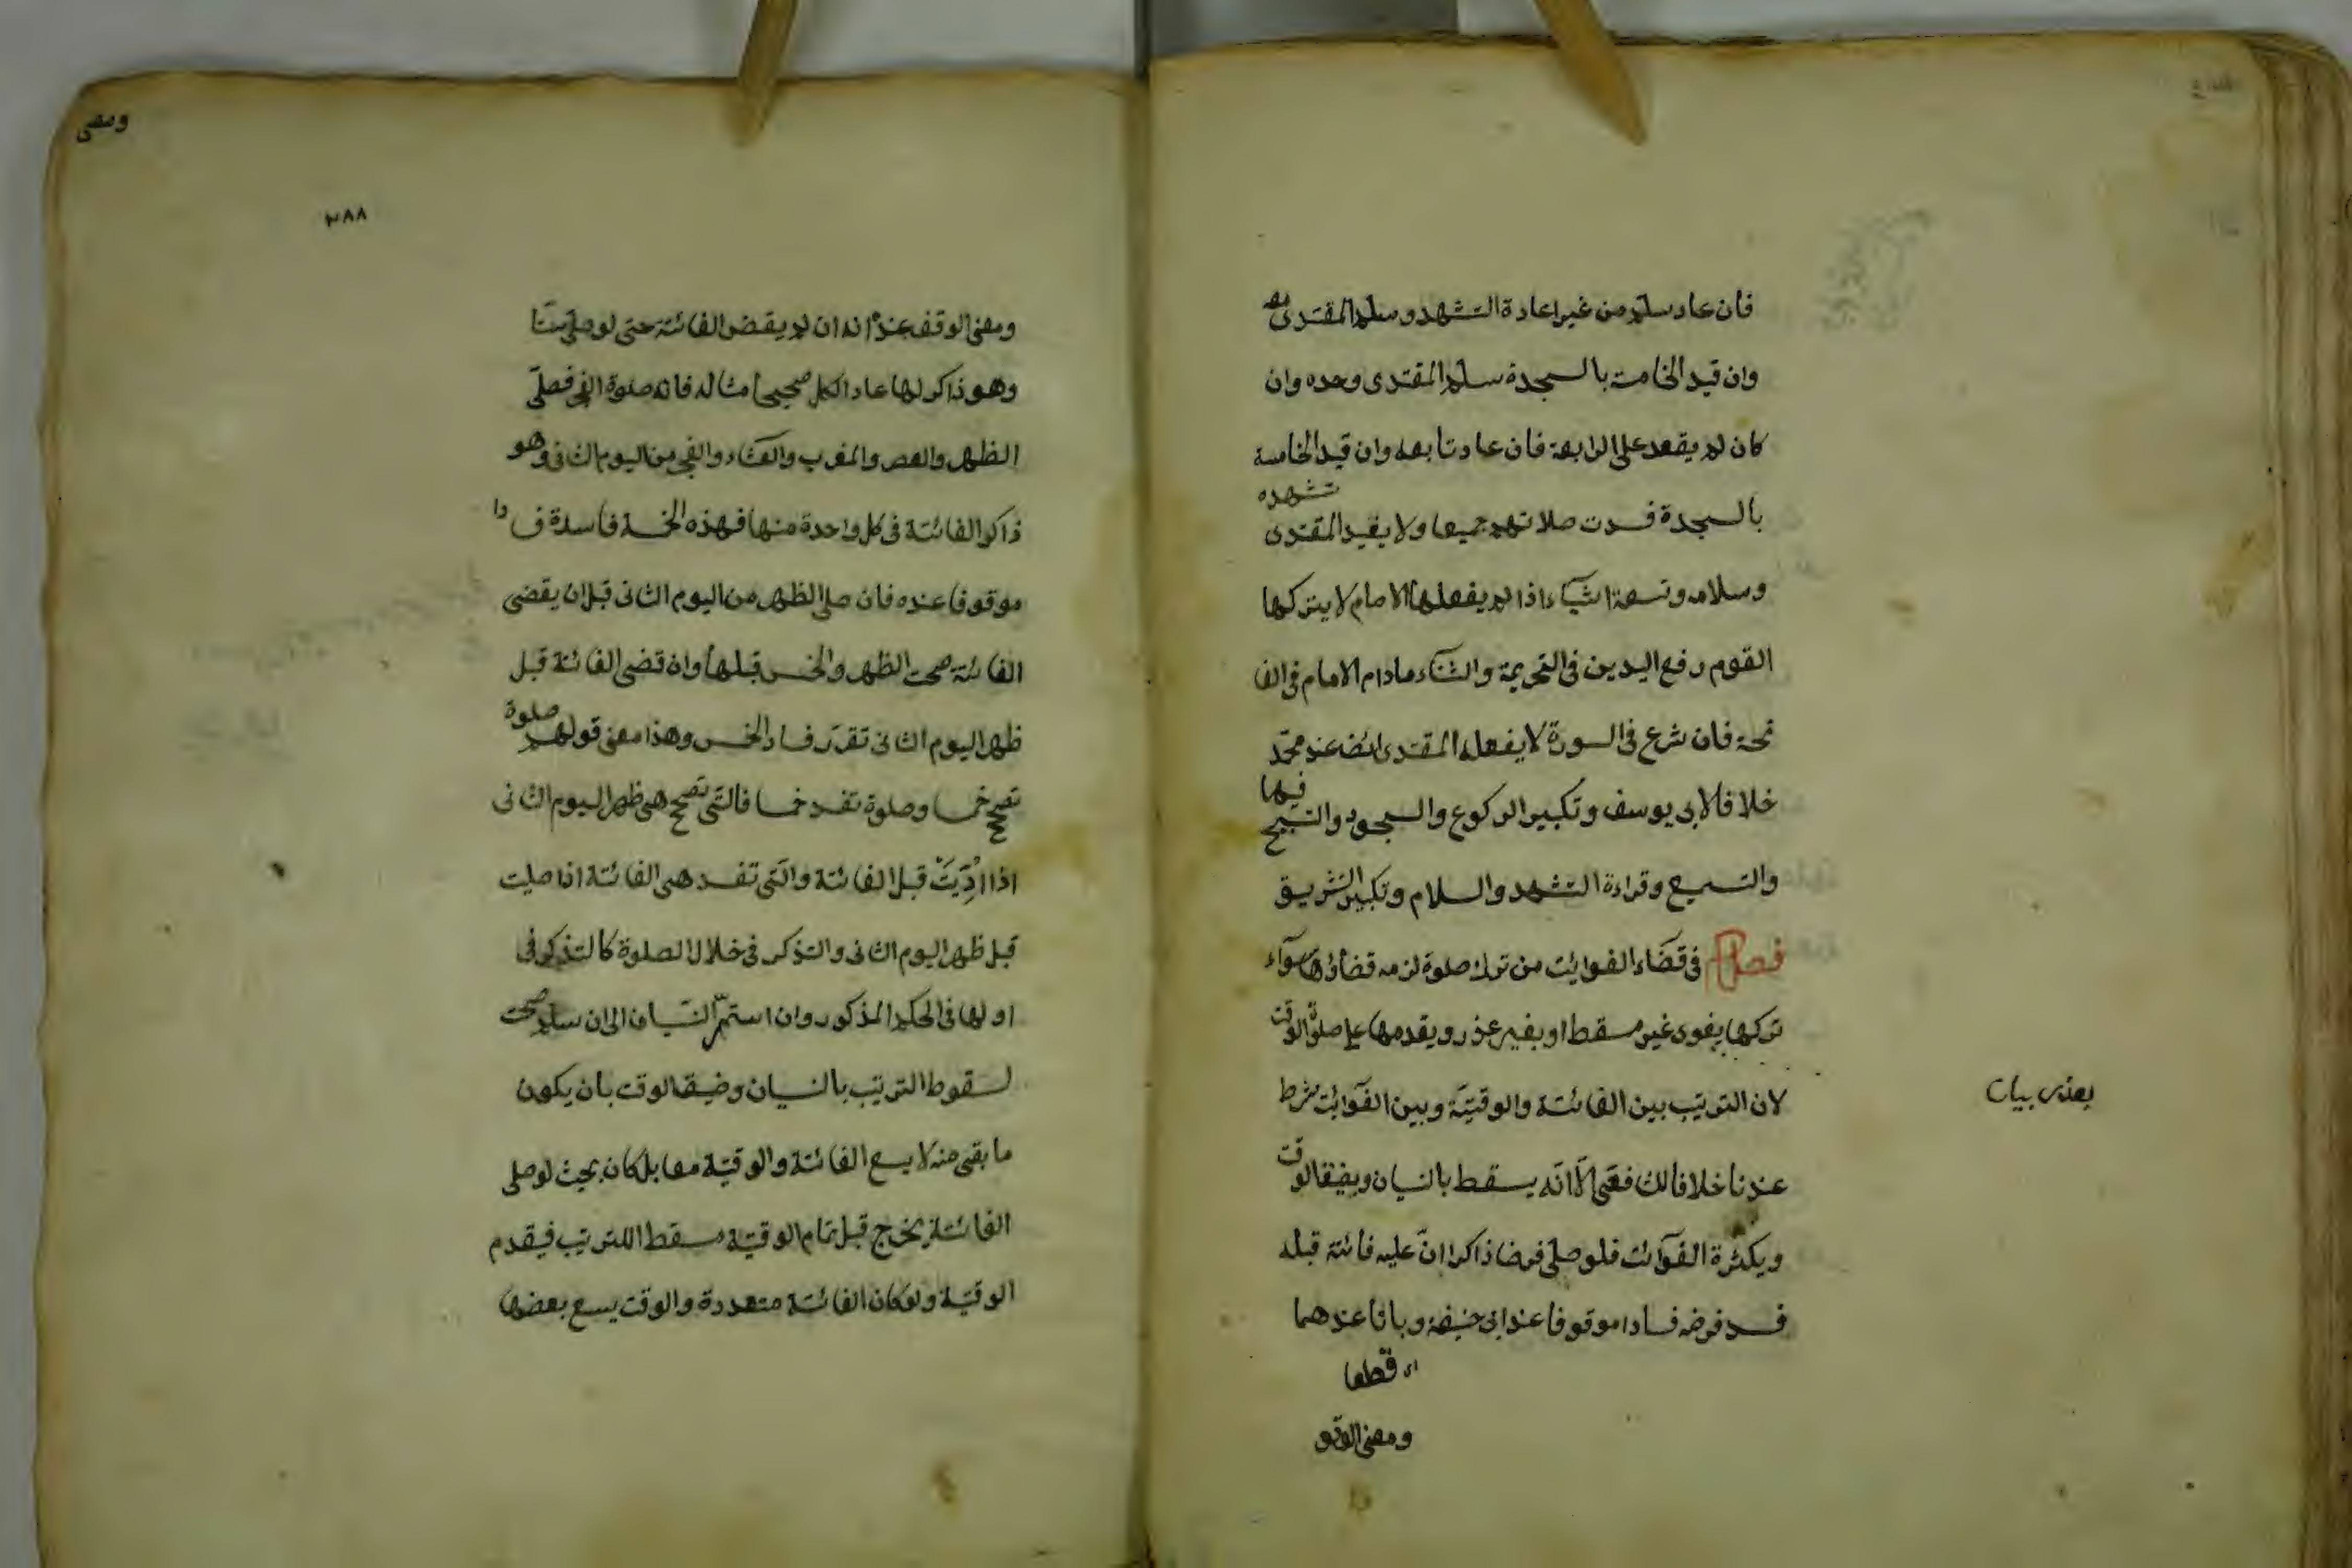 فان عاد سلم من غير اعادة التشهد وسلم المقتدى معه
وان قيد الخامسة بالسجدة سلم المقتدى وحده وان
كان لم يقعد على الرابعة فان عاد تابعه وان قيد الخامسة
بالسجدة فسدت صلاتهم جميعا ولا يفيد المقتدى تشهده
وسلامه وتسعة اشياء اذا لم يفعلها الامام لا يتركها
القوم رفع اليدين فى التحريمة والثناء مادام الامام فى الفا
تحة فان شرع فى السورة لا يفعله المقتدى ايضا عند محمد
خلافا لابى يوسف وتكبير الركوع والسجود والتسبيح فيها
والتسميع وقراءة التشهد والسلام وتكبير التشريق
فصل فى قضاء الفوايت من ترك صلوة لزمه قضاؤها سوآء
تركها بغير مسقط او بغير عذر ويقدمها على صلوة الوقت
لان الترتيب بين الفائتة والوقتية وبين الفوايت شرط
عندنا خلافا للشافعى الّا انّه يسقط بالنسيان وبضيق الوقت
وبكثرة الفوآئت فلو صلّى فرضا ذاكرا انّ عليه فائتة قبله
فسد فرضه فسادا موقوفا عند ابى حنيفة وباتا عندهما
اى قطعا
ومعنى الوقو
ومعنى
٣٨٨
ومعنى الوقف عنده انه ان لم يقض الفائتة حتى لو صلّى ستّا
وهو ذاكر لها عاد الكل صحيحا مثاله فاته صلوة الفجر فصلّى
الظهر والعصر والمغرب والعشاء والفجر من اليوم الثانى وهو
ذاكر الفائتة فى كل واحدة منها فهذه الخمسة فاسدة فسادا
موقوفا عنده فان صلى الظهر من اليوم الثانى قبل ان يقضى
الفائتة صحت الظهر والخمس قبلها وان قضى الفائتة قبل
ظهر اليوم الثانى تقرّر فساد الخمس وهذا معنى قولهم صلوة
تصحح خمسا وصلوة تفسد خمسا فالتى تصحح هى ظهر اليوم الثانى
اذا اُدِّيَتْ قبل الفائتة والتى تفسد هى الفائتة اذا صليت
قبل ظهر اليوم الثانى والتذكر فى خلال الصلوة كالتذكر فى
اولها فى الحكم المذكور وان استمرّ النسيان الى ان سلم صحت
لسقوط الترتيب بالنسيان وضيق الوقت بان يكون
ما بقى منه لا يسع الفائتة والوقتية معا بل كان بحيث لو صلى
الفائتة يخرج قبل تمام الوقتية مسقط للترتيب فيقدم
الوقتية ولو كان الفائتة متعددة والوقت يسع بعضها